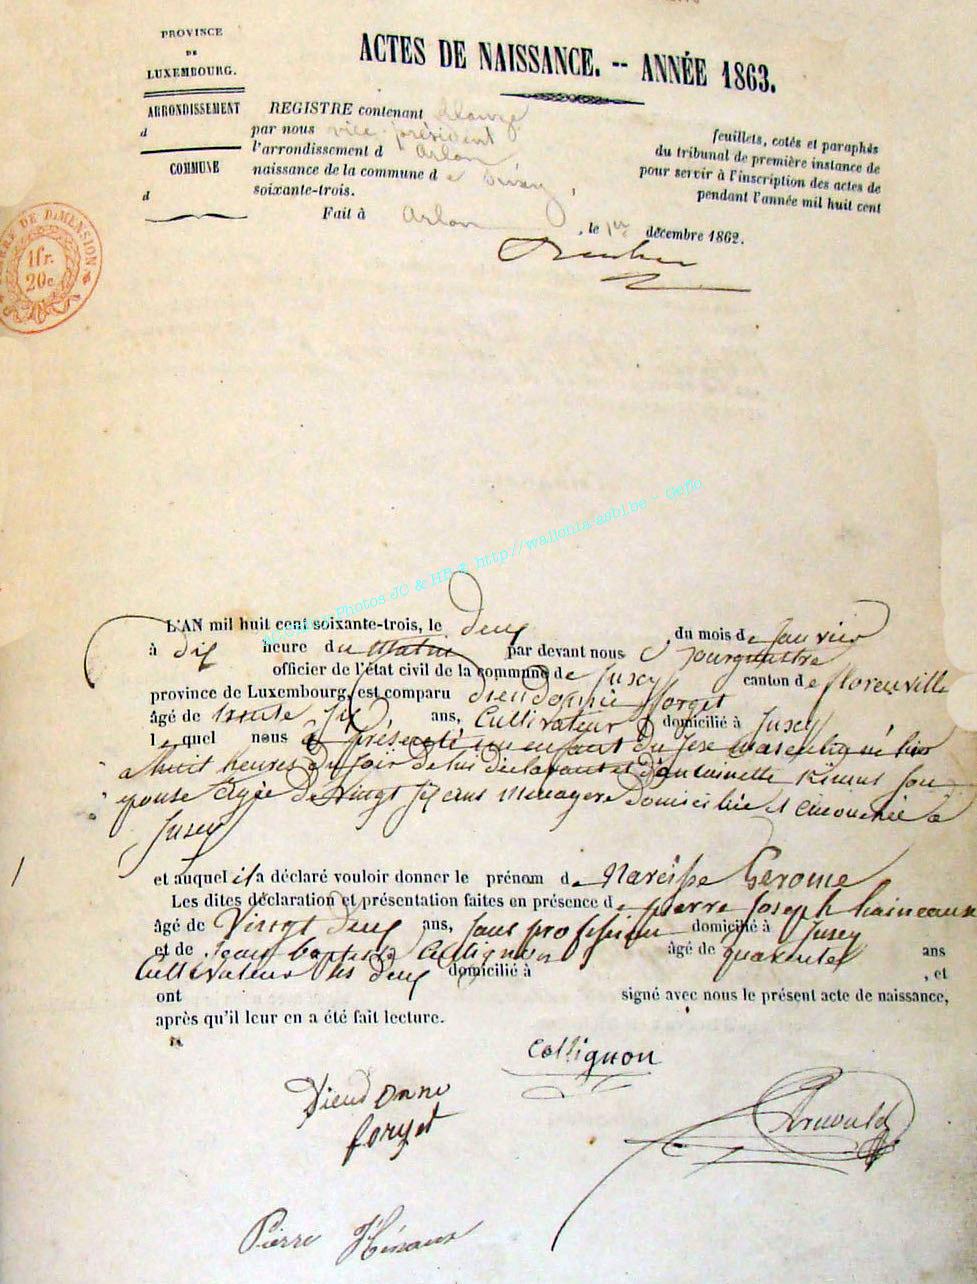 PROVINCE
DE
LUXEMBOURG.
ARRONDISSEMENT
d
COMMUNE
d
ACTES DE NAISSANCE. -- ANNÉE 1863.
REGISTRE contenant
par nous vice-président
l'arrondissement d Arlon
naissance de la commune d e
soixante-trois.
feuillets, cotés et paraphés
du tribunal de première instance de
pour servir à l'inscription des actes de
pendant l'année mil huit cent
Fait à Arlon, le 1er décembre 1862.
DE DIMENSION
1fr.
20c.
ACGHFam Photos JC & HB & http://wallonia-asbl.be - Geflo
L'AN mil huit cent soixante-trois, le deux du mois de janvier
à dix heure du matin par devant nous
officier de l'état civil de la commune de Jusey canton de florenville
province de Luxembourg, est comparu dieudonné forget
âgé de trente six ans, Cultivateur domicilié à Jusey
lequel nous a présenté un enfant du sexe masculin né hier
a huit heures du soir de lui déclarant et d'antoinette son
epouse agée de vingt six ans menagere domiciliée et accouchée a
Jusey
et auquel il a déclaré vouloir donner le prénom de Narcisse Gerome
Les dites déclaration et présentation faites en présence de pierre Joseph
âgé de Vingt deux ans, sans profession domicilié à Jusey
et de Jean baptiste Collignon âgé de quarante ans
Cultivateur les deux domicilié à , et
ont signé avec nous le présent acte de naissance,
après qu'il leur en a été fait lecture.
Collignon
Dieudonne
forget
Pierre